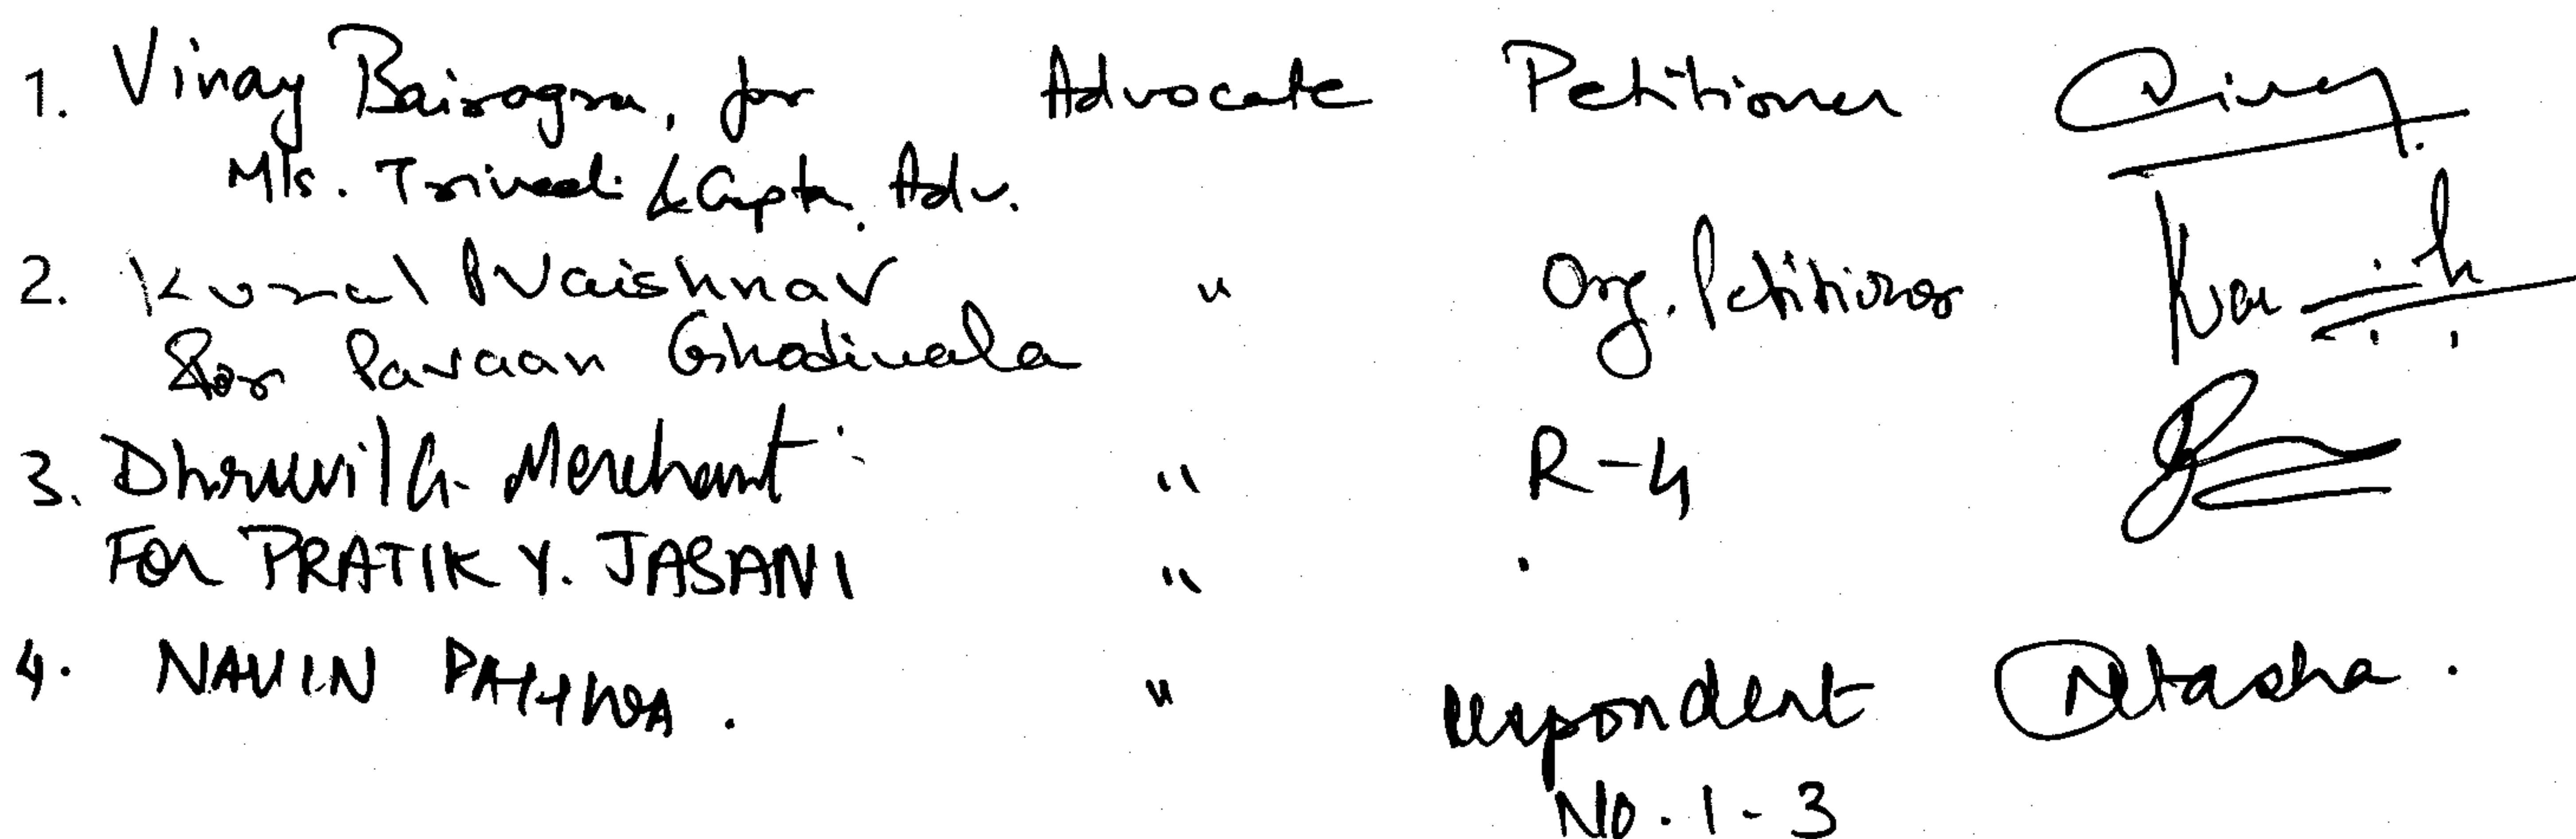 1. Vinay Bairagra, for Advocate Petitioner Vinay
M/s. Trivedi & Gupta. Adv.
2. Kunal P Vaishnav " Org. Petitioner
For Pavaan Ghodiwala
3. Dhruvil G. Merchant " R-4
FOR PRATIK Y. JASANI "
4. NAVIN PAHWA. " respondent Natasha.
No. 1-3